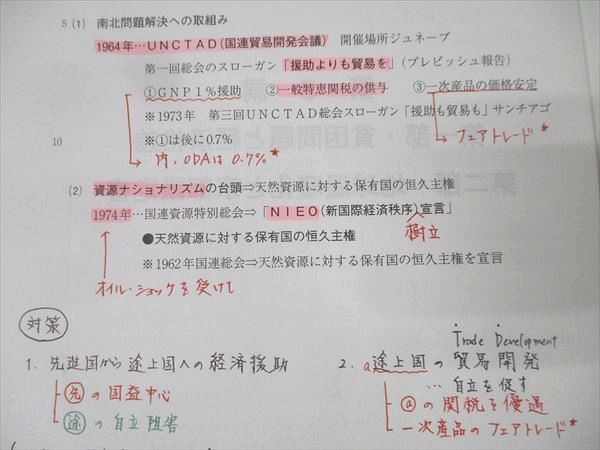 5 (1) 南北問題解決への取組み
1964年…UNCTAD(国連貿易開発会議) 開催場所ジュネーブ
第一回総会のスローガン「援助よりも貿易を」(プレビッシュ報告)
①GNP1%援助 ②一般特恵関税の供与 ③一次産品の価格安定
※1973年 第三回UNCTAD総会スローガン「援助も貿易も」サンチアゴ
10 ※①は後に0.7%
フェアトレード★
内、ODAは0.7%★
(2) 資源ナショナリズムの台頭⇒天然資源に対する保有国の恒久主権
1974年…国連資源特別総会⇒「NIEO(新国際経済秩序)宣言」
樹立
●天然資源に対する保有国の恒久主権
※1962年国連総会⇒天然資源に対する保有国の恒久主権を宣言
オイル・ショックを受けて
対策
Trade Development
1. 先進国から途上国への経済援助
2. a途上国の貿易開発
…自立を促す
先の国益中心
ⓐの関税を優遇
途の自立阻害
一次産品のフェアトレード★